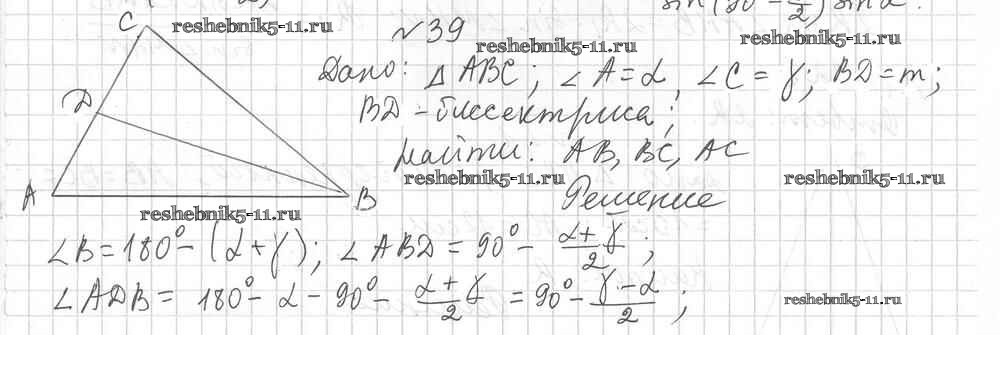 sin(90 - 2/2) sin α.
C reshebnik5-11.ru №39 reshebnik5-11.ru reshebnik5-11.ru
Дано: Δ ABC; ∠ A = α, ∠ C = γ; BD = m;
D BD - биссектриса;
найти: AB, BC, AC
reshebnik5-11.ru reshebnik5-11.ru
A B Решение
reshebnik5-11.ru
∠B = 180° - (α + γ); ∠ ABD = 90° - (α + γ)/2;
∠ ADB = 180° - α - 90° - (α + γ)/2 = 90° - (γ - α)/2;
reshebnik5-11.ru